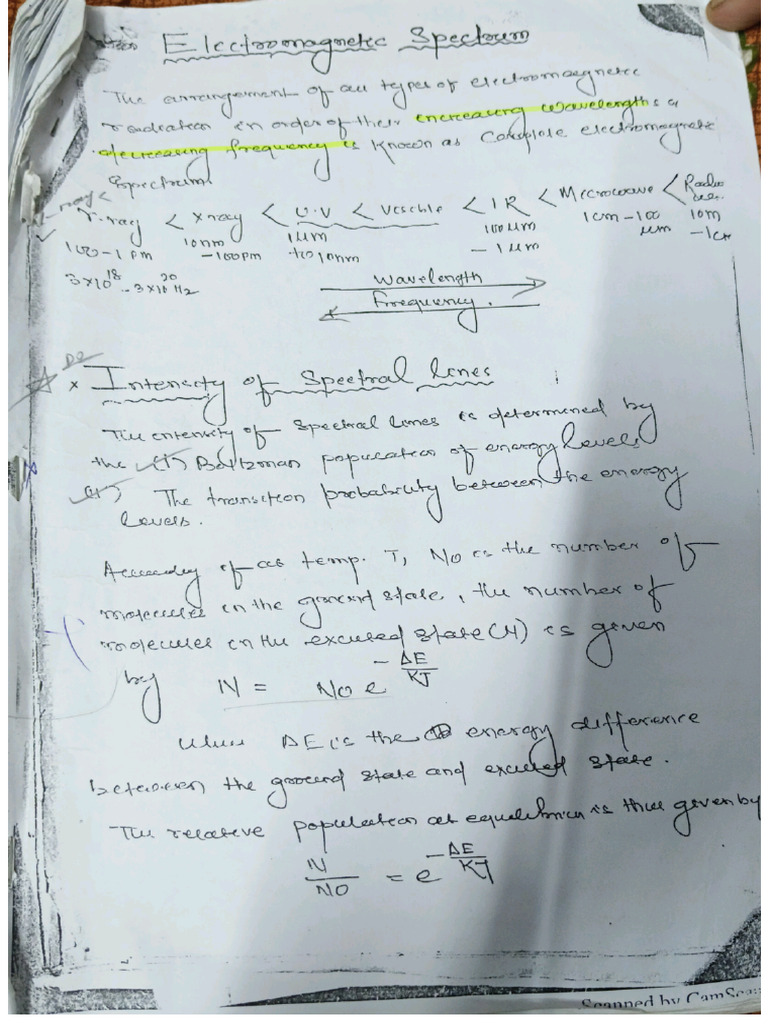 Electromagnetic Spectrum
The arrangement of all types of electromaegnetic
radiation in order of their increasing wavelengths &
decreasing frequency is known as complete electromagnetic
Spectrum
γ-ray < X ray < U.V < Visible < IR < Microwave < Radio
100-1 pm 10nm -100pm 1µm to 10nm 100µm - 1µm 1cm - 100 µm 10m -1cm
3×10^18 - 3×10^20 Hz
Wavelength
Frequency.
× Intensity of Spectral lines
The intensity of spectral lines is determined by
the (1) Boltzman population of energy levels
The transition probability between the energy
levels.
According if at temp. T, No is the number of
molecules in the ground state, the number of
molecules in the excited state (N) is given
by N = No e^-ΔE/KT
Where ΔE is the energy difference
between the ground state and excited state.
The relative population at equilibrium is thus given by
N/NO = e^-ΔE/KT
Scanned by CamScan